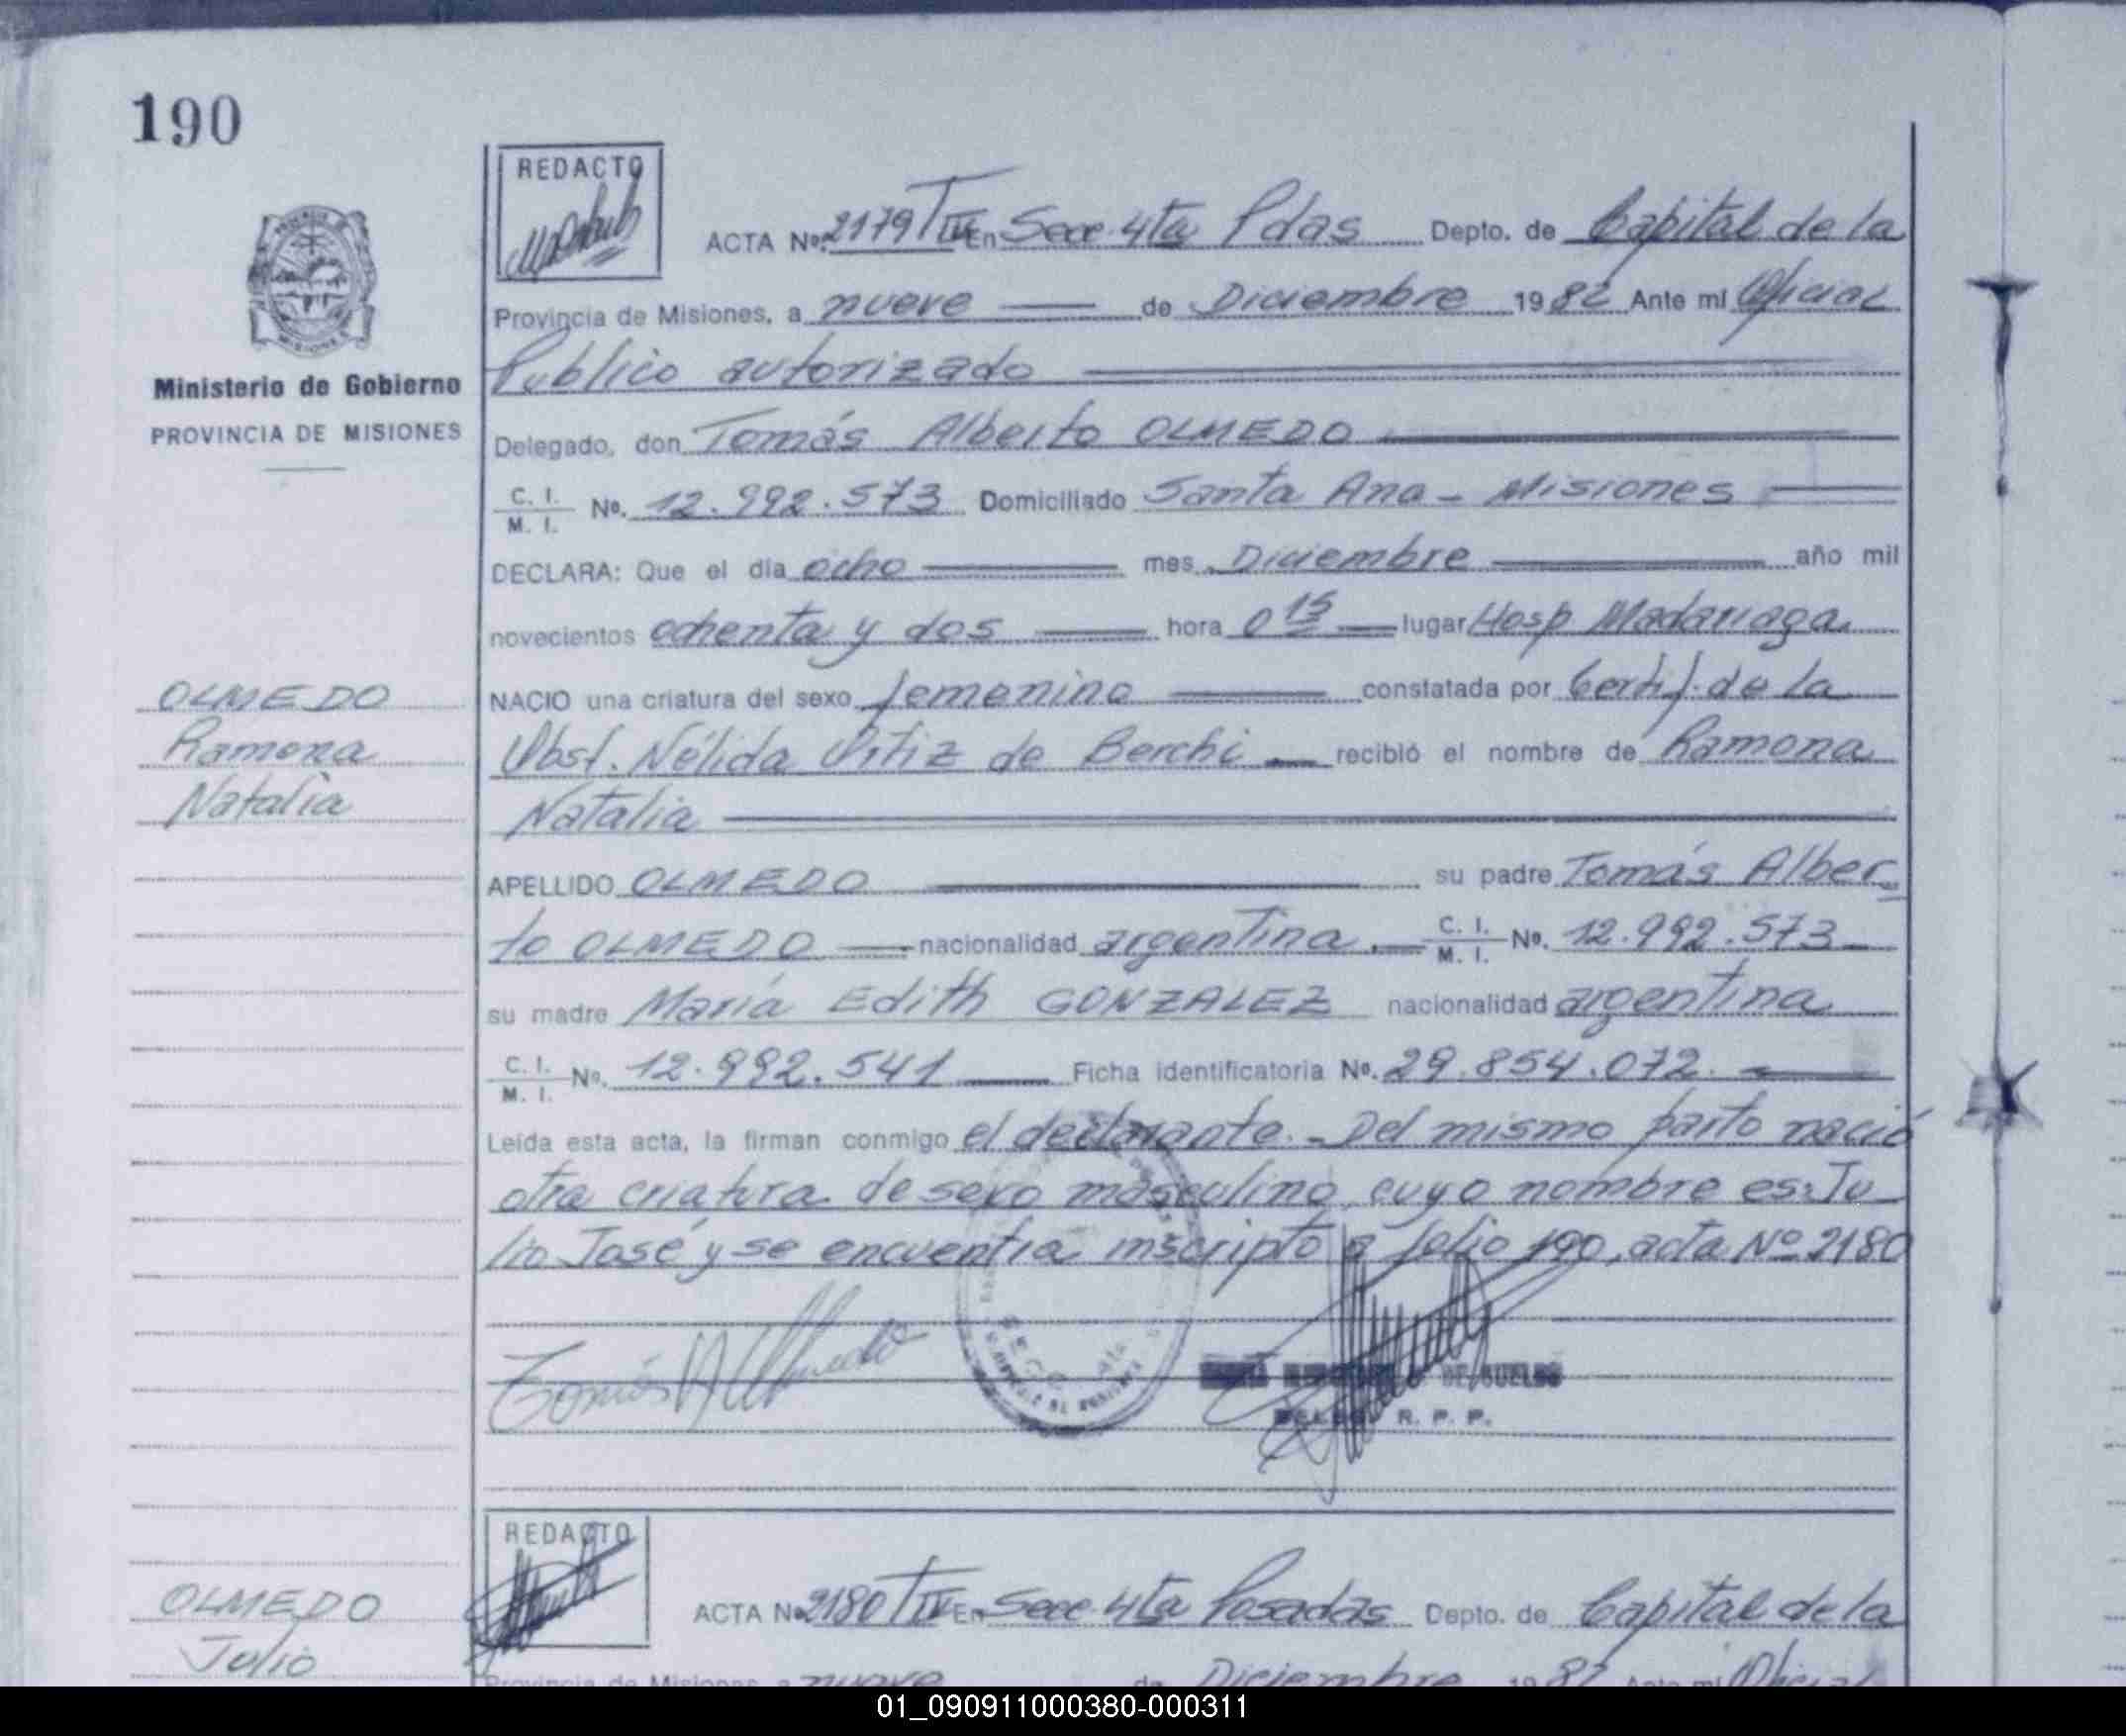 190
REDACTO
ACTA Nº. 2179 T IV En Secc. 4ta Pdas Depto. de Capital de la
Provincia de Misiones, a nueve de Diciembre 1982 Ante mí Oficial
Publico autorizado
Ministerio de Gobierno
PROVINCIA DE MISIONES
Delegado, don Tomás Alberto OLMEDO
C. I. / M. I. Nº. 12.992.573 Domiciliado Santa Ana - Misiones
DECLARA: Que el día ocho mes Diciembre año mil
novecientos ochenta y dos hora 0 15 lugar Hosp Madariaga
OLMEDO
Ramona
Natalia
NACIO una criatura del sexo femenino constatada por Certif. de la
Obst. Nélida Ortiz de Berchi recibió el nombre de Ramona
Natalia
APELLIDO OLMEDO su padre Tomás Alber
to OLMEDO nacionalidad argentina C. I. / M. I. Nº. 12.992.573
su madre María Edith GONZALEZ nacionalidad argentina
C. I. / M. I. Nº. 12.992.541 Ficha identificatoria Nº. 29.854.072.
Leída esta acta, la firman conmigo el declarante. - Del mismo parto nació
otra criatura de sexo masculino, cuyo nombre es: Ju
lio José y se encuentra inscripto a folio 190, acta Nº 2180
Tomás A Olmedo
DE SUELDO
R. P. P.
REDACTO
OLMEDO
Julio
ACTA Nº 2180 T IV En Secc. 4ta Posadas Depto. de Capital de la
Provincia de Misiones, a nueve de Diciembre 1982 Ante mí Oficial
01_090911000380-000311